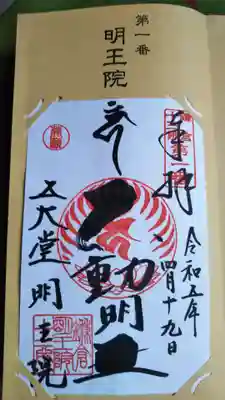 第一番
明王院
奉拝
令和五年
四月十九日
不動明王
五大堂明王院